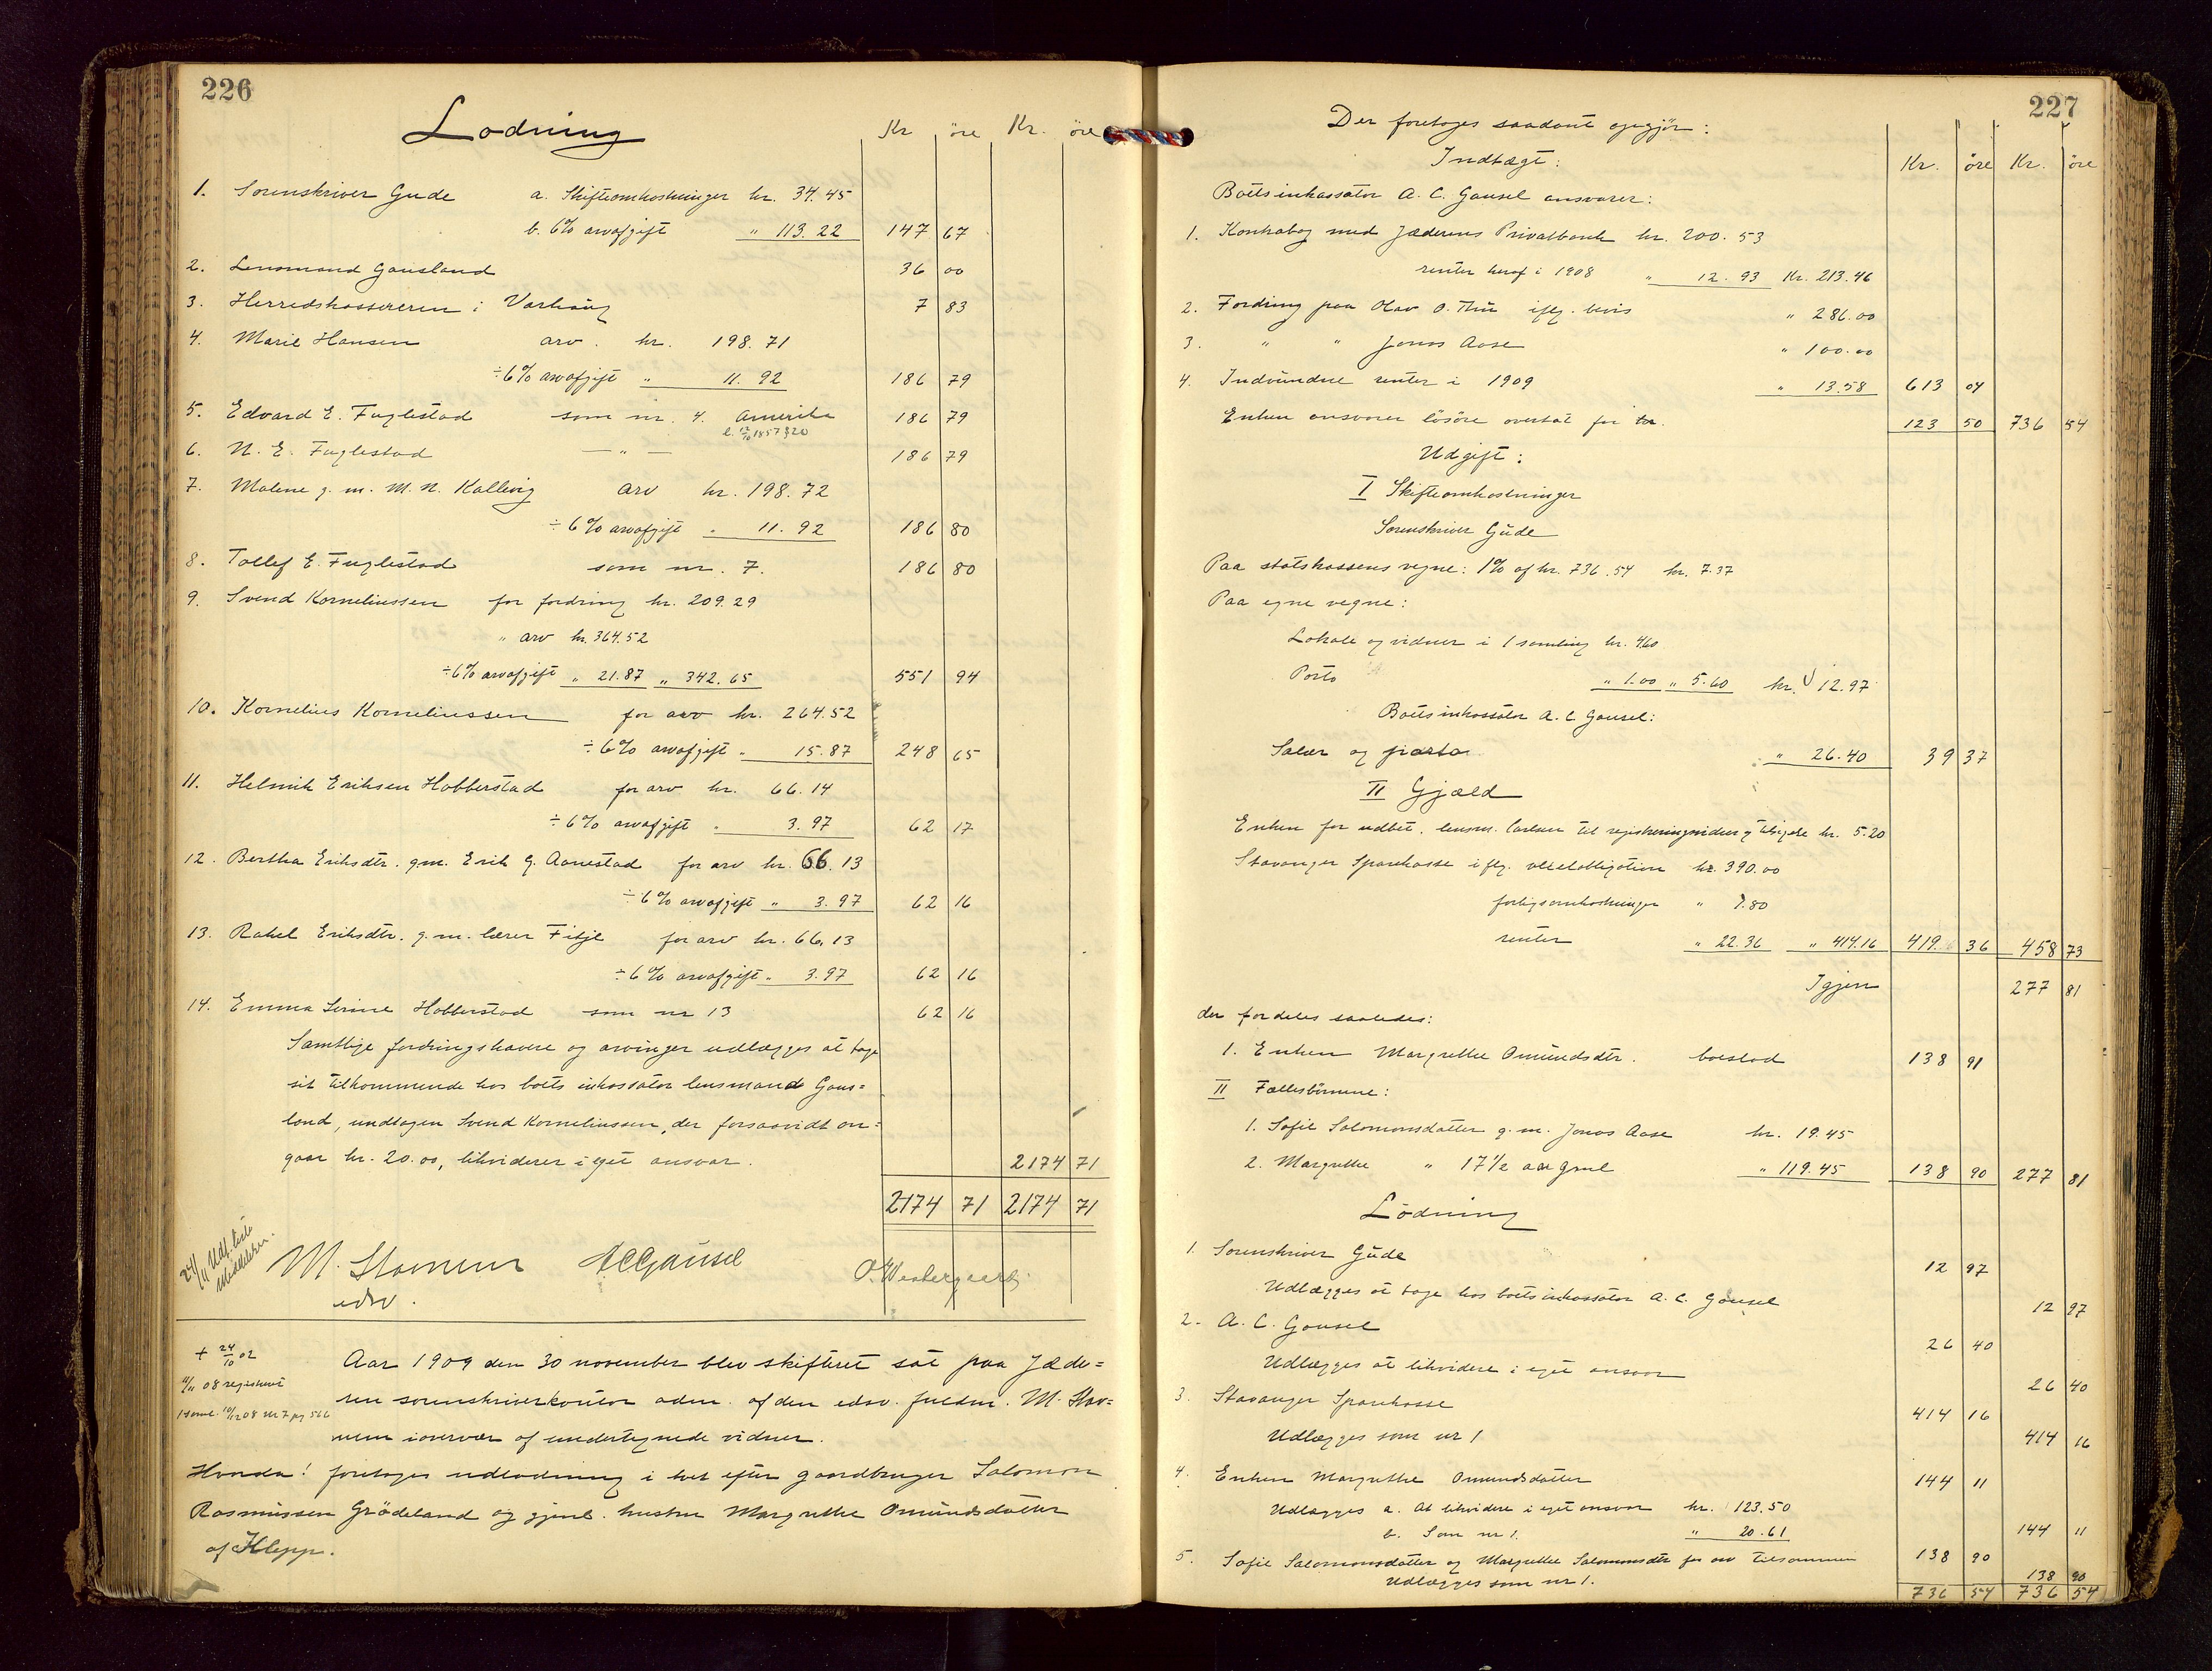 226
Lodning
Kr øre Kr. øre
1. Sorenskriver Gude a. Skifteomkostninger kr. 34.45
b. 6% arvafgift " 113.22 147 67
2. Lensmand Gausland 36 00
3. Herredskassereren i Varhaug 7 83
4. Marie Hansen arv. kr. 198.71
÷6% arvafgift " 11.92 186 79
5. Edvard E. Fuglestad som nr. 4. Amerika 186 79
l. 12/10 1857 § 20
6. N. E. Fuglestad — " — 186 79
7. Malene g. m. M. N. Kallevig arv kr. 198.72
÷6% arvafgift " 11.92 186 80
8. Tollef E. Fuglestad som nr. 7. 186 80
9. Svend Korneliussen for fordring kr. 209.29
" arv kr. 364.52
÷6% arvafgift " 21.87 " 342.65 551 94
10. Kornelius Korneliussen for arv kr. 264.52
÷6% arvafgift " 15.87 248 65
11. Helmik Eriksen Hobberstad for arv kr. 66.14
÷6% arvafgift " 3.97 62 17
12. Bertha Eriksdtr. g.m. Erik G. Aanestad for arv kr. 66.13
÷6% arvafgift " 3.97 62 16
13. Rakel Eriksdtr. g.m. lærer Fitje for arv kr. 66.13
÷6% arvafgift " 3.97 62 16
14. Emma Serine Hobberstad som nr 13 62 16
Samtlige fordringshavere og arvinger udlægges at tage
sit tilkommende hos boets inkassator lensmand Gaus=
land, undtagen Svend Korneliussen, der forsaavidt an=
gaar kr. 20.00, likviderer i eget ansvar. 2174 71
2174 71 2174 71
24/11 Udl. liste
M. Stavnem ACGausel O. Westergaard
edsv.
+ 24/10 02
11/11 08 registrert
1 saml. 10/12 08 nr 7 pg 566
Aar 1909 den 30 november blev skifteret sat paa Jæde=
ren sorenskriverkontor adm. af den edsv. fuldm. M. Stav=
nem i overvær af undertegnede vidner.
Hvorda! foretoges udlodning i boet efter gaardbruger Salomon
Rasmussen Grødeland og gjenl. hustru Margrethe Omundsdatter
af Klepp.
227
Der foretoges saadant opgjør:
Kr. øre Kr. øre
Indtægt:
Boets inkassator A. C. Gausel ansvarer:
1. Kontrabog med Jæderens Privatbank kr. 200.53
renter heraf i 1908 " 12.93 Kr. 213.46
2. Fordring paa Olav O. Thu iflg. bevis " 286.00
3. " " Jonas Aase " 100.00
4. Indvundne renter i 1909 " 13.58 613 04
Enken ansvarer løsøre overtat for kr. 123 50 736 54
Udgift:
I Skifteomkostninger
Sorenskriver Gude
Paa statskassens vegne: 1% af kr. 736.54 kr. 7.37
Paa egne vegne:
Lokale og vidner i 1 samling kr. 4.60
Porto " 1.00 " 5.60 kr. 12.97
Boets inkassator A. C Gausel:
Salær og porto " 26.40 39 37
II Gjæld
Enken for udbet. lensm. Carlsen til registreringsvidner kr. 5.20
Stavanger Sparekasse iflg. vexelobligation kr. 390.00
forligsomkostninger " 1.80
renter " 22.36 " 414.16 419 36 458 73
Igjen 277 81
der fordeles saaledes:
1. Enken Margrethe Omundsdtr. boeslod 138 91
II Fællesbørnene:
1. Sofie Salomonsdatter g. m. Jonas Aase kr. 19.45
2. Margrethe " 17½ aar gml " 119.45 138 90 277 81
Lodning
1. Sorenskriver Gude 12 97
Udlægges at tage hos boets inkassator A. C. Gausel 12 97
2. A. C. Gausel 26 40
Udlægges at likvidere i eget ansvar 26 40
3. Stavanger Sparekasse 414 16
Udlægges som nr 1 414 16
4. Enken Margrethe Omundsdatter 144 11
Udlægges a. At likvidere i eget ansvar kr. 123.50
b. Som nr 1. " 20.61 144 11
5. Sofie Salomonsdatter og Margrethe Salomonsdtr for arv tilsammen 138 90
Udlægges som nr 1. 138 90
736 54 736 54